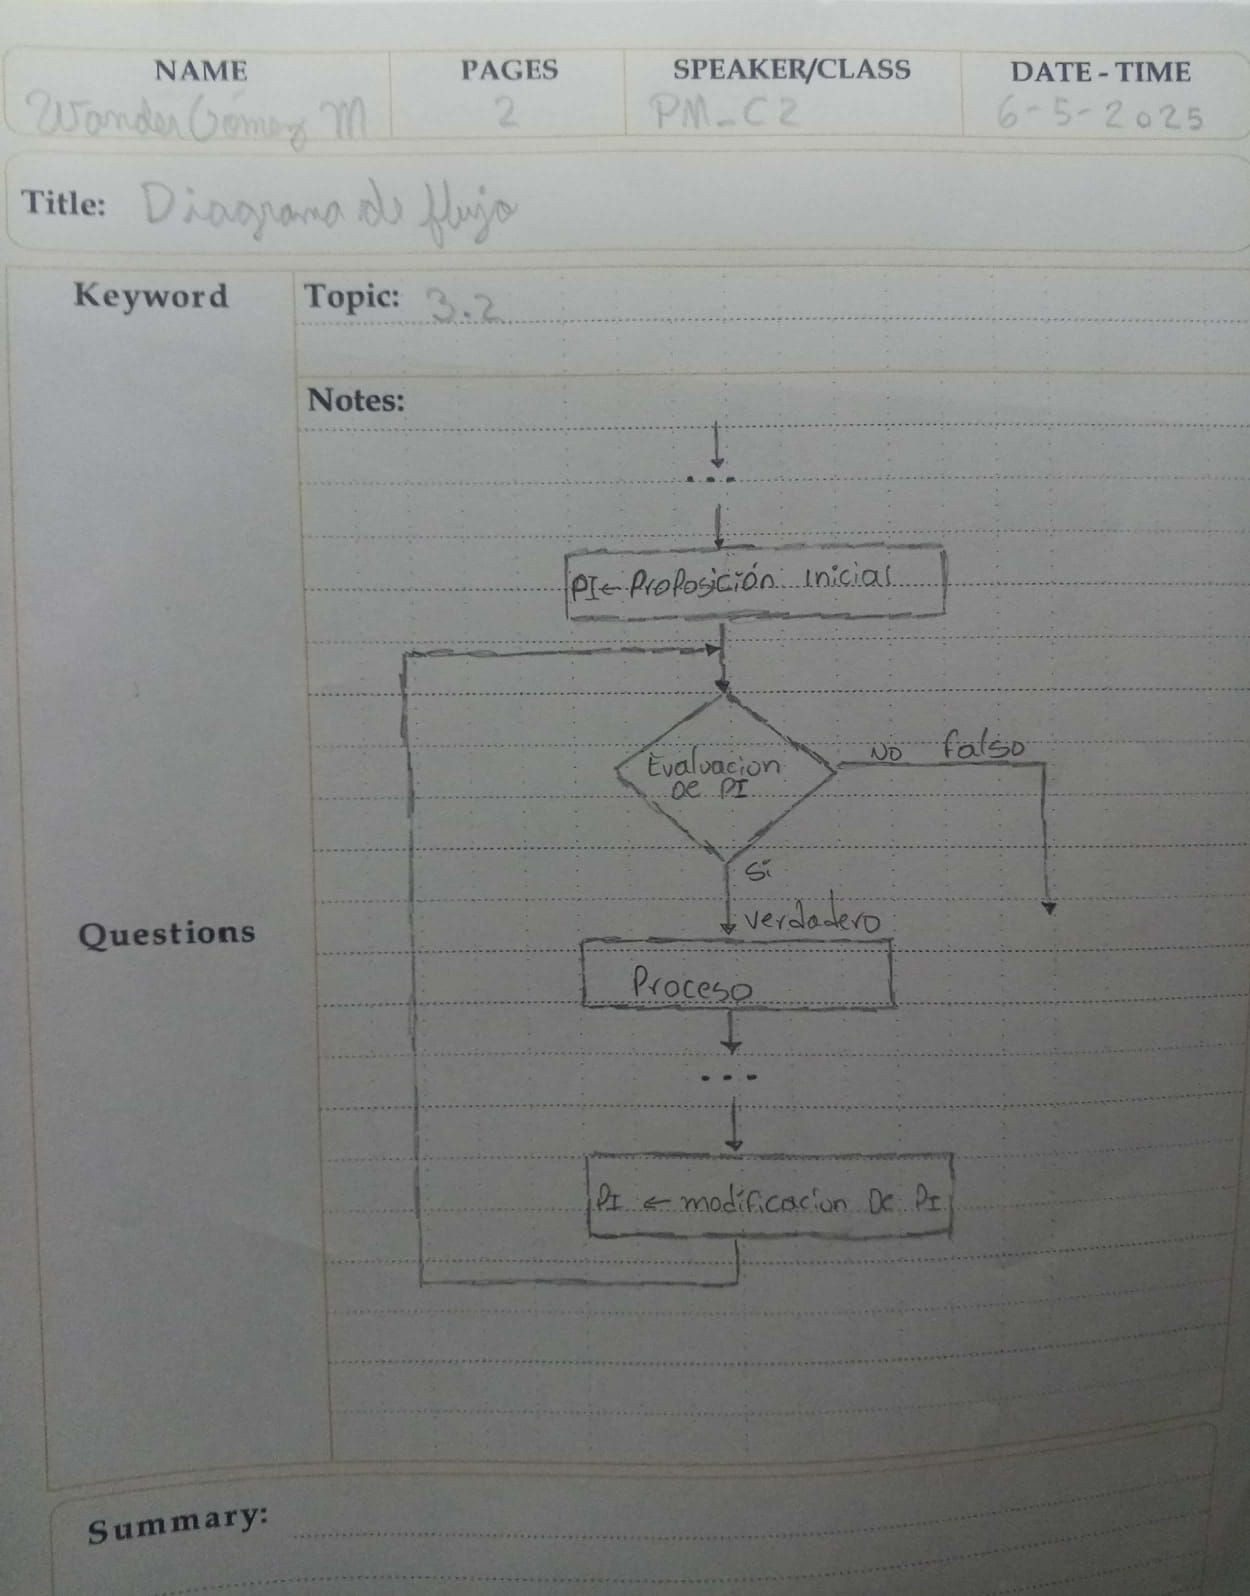 NAME PAGES SPEAKER/CLASS DATE - TIME
Wander Gómez M 2 PM-C2 6-5-2025
Title: Diagrama de flujo
Keyword Topic: 3.2
Notes:
...
PI ← Proposición inicial
Evaluacion
De PI
No falso
Si
verdadero
Questions
Proceso
...
PI ← modificacion De PI
Summary: